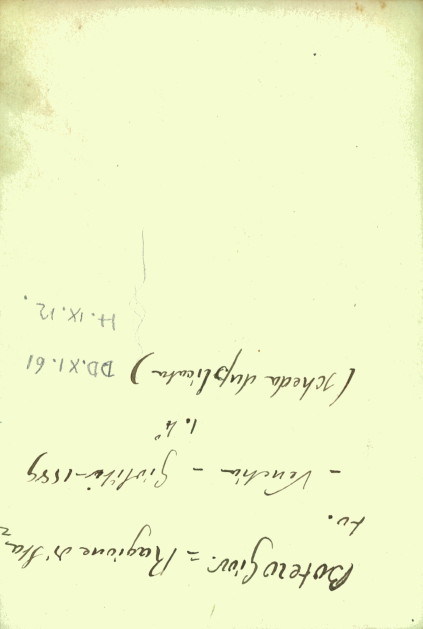 Botero Giov. = Ragione di Sta=
to.
- Venetia - Gioliti - 1589
1. 4°
(scheda duplicata) DD.XI.61
H.IX.12.